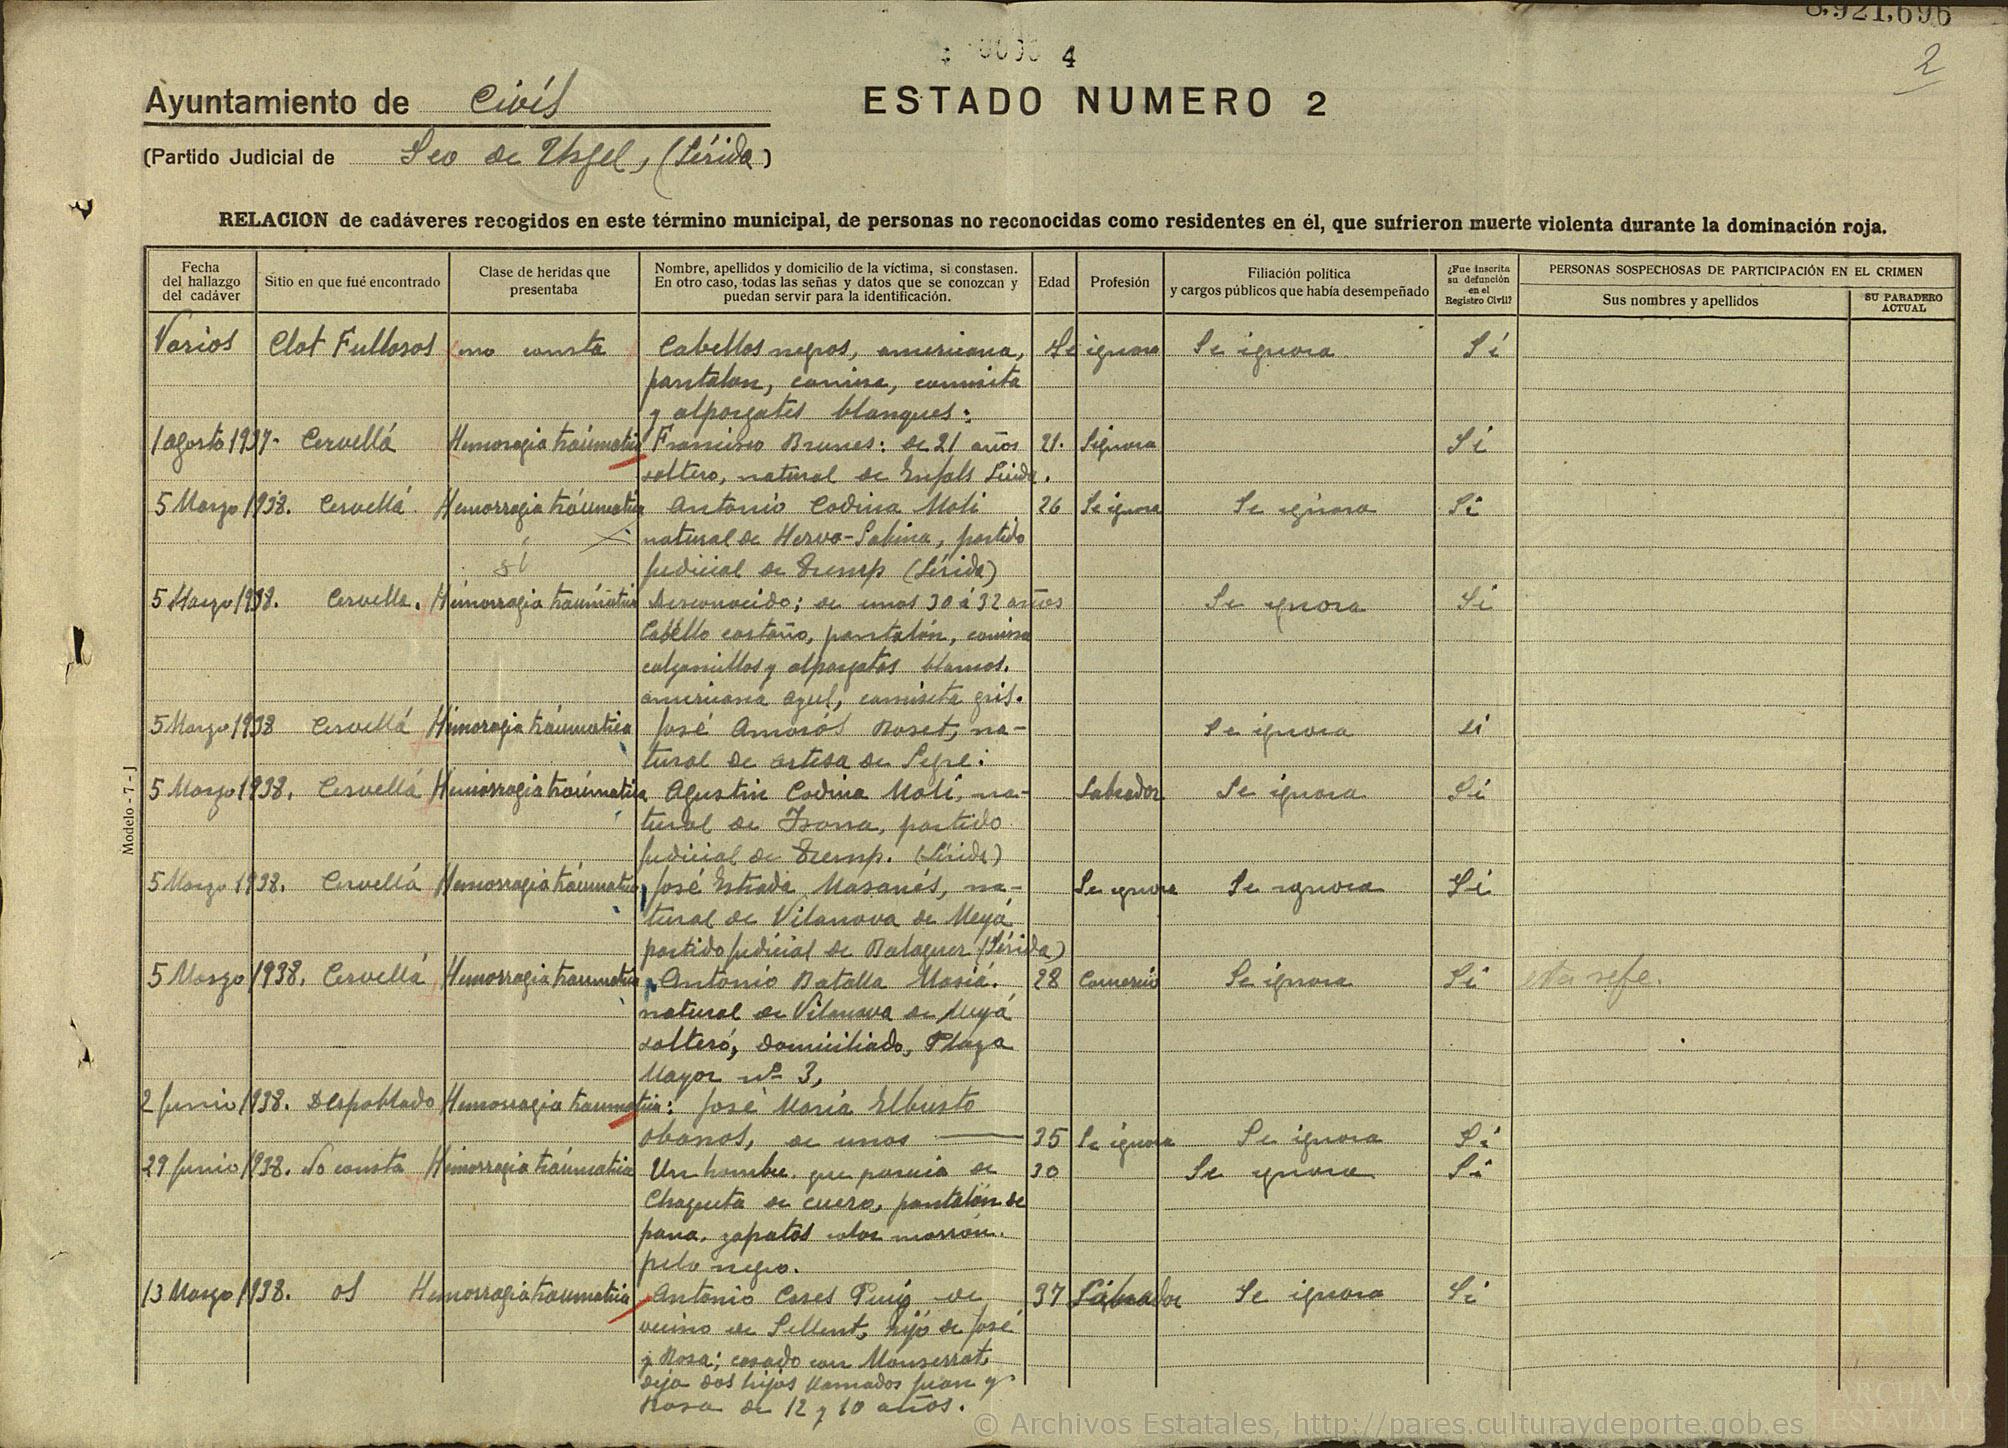 8.921,696
4
2
Ayuntamiento de Civís
ESTADO NUMERO 2
(Partido Judicial de Seo de Urgel, (Lérida)
RELACION de cadáveres recogidos en este término municipal, de personas no reconocidas como residentes en él, que sufrieron muerte violenta durante la dominación roja.
Fecha del hallazgo del cadáver
Sitio en que fué encontrado
Clase de heridas que presentaba
Nombre, apellidos y domicilio de la víctima, si constasen. En otro caso, todas las señas y datos que se conozcan y puedan servir para la identificación.
Edad
Profesión
Filiación política y cargos públicos que había desempeñado
¿Fue inscrita su defunción en el Registro Civil?
PERSONAS SOSPECHOSAS DE PARTICIPACIÓN EN EL CRIMEN
Sus nombres y apellidos
SU PARADERO ACTUAL
Varios Clot Fullosos no consta Cabellos negros, americana, Se ignora Se ignora Si
pantalon, camisa, camiseta
y alporgates blanques:
1 agosto 1937- Cervellá Hemoragia traúmatica Francisco Brunes: de 21 años 21. Signora Si
soltero, natural de Lérida.
5 Marzo 1938. Cervellá. Hemorragia traúmatica Antonio Codina Moli 26 Se ignora Se ignora Si
natural de Herva-Sabina, partido
si judicial de Tremp (Lérida)
5 Marzo 1938. Cervella. Hémorragia traúmatica Desconocido; de unos 30 á 32 años Se ignora Si
Cabello castaño, pantalón, camisa
calzoncillos y alpargatas blancos.
americana azul, camiseta gris.
5 Marzo 1938 Cervellá Hémoragia traúmatica José Amorós Roset, na-
Se ignora si
tural de artesa de Segre:
5 Marzo 1938. Cervellá Hemórragia traúmatica Agustin Codina Moli, na- Labrador Se ignora Si
tural de Isona, partido
judicial de Tremp. (Lérida)
5 Marzo 1938. Cervellá Hemorragia traúmatica José Estrada Masanés, na- Se ignora Se ignora Si
tural de Vilanova de Meyá
partido judicial de Balaguer (Lérida)
5 Marzo 1938. Cervellá Hemorragia traumatica Antonio Batalla Masiá. 28 Comercio Se ignora Si
natural de Vilanova de Meyá
solteró, domiciliado, Plaza
Mayor nº 3,
2 junio 1938. Despoblado Hemorragia traumatica: José Maria Elbusto
obanos, de unos — 35 Se ignora Se ignora Si
29 junio 1938. No consta Hémorragia traúmatica Un hombre que poseia de 30 Se ignora Si
Chaqueta de cuero, pantalón de
pana, zapatos color marrón.
pelo negro.
13 Marzo 1938. os Hemorragia traumatica Antonio Ceres Puig de 37 Labrador Se ignora Si
vecino de Sellent, hijo de José
y Rosa; casado con Monserrat,
deja dos hijos llamados juan y
Rosa de 12 y 10 años.
Modelo - 7 - J
© Archivos Estatales, http://pares.culturaydeporte.gob.es
ARCHIVOS
ESTATALES